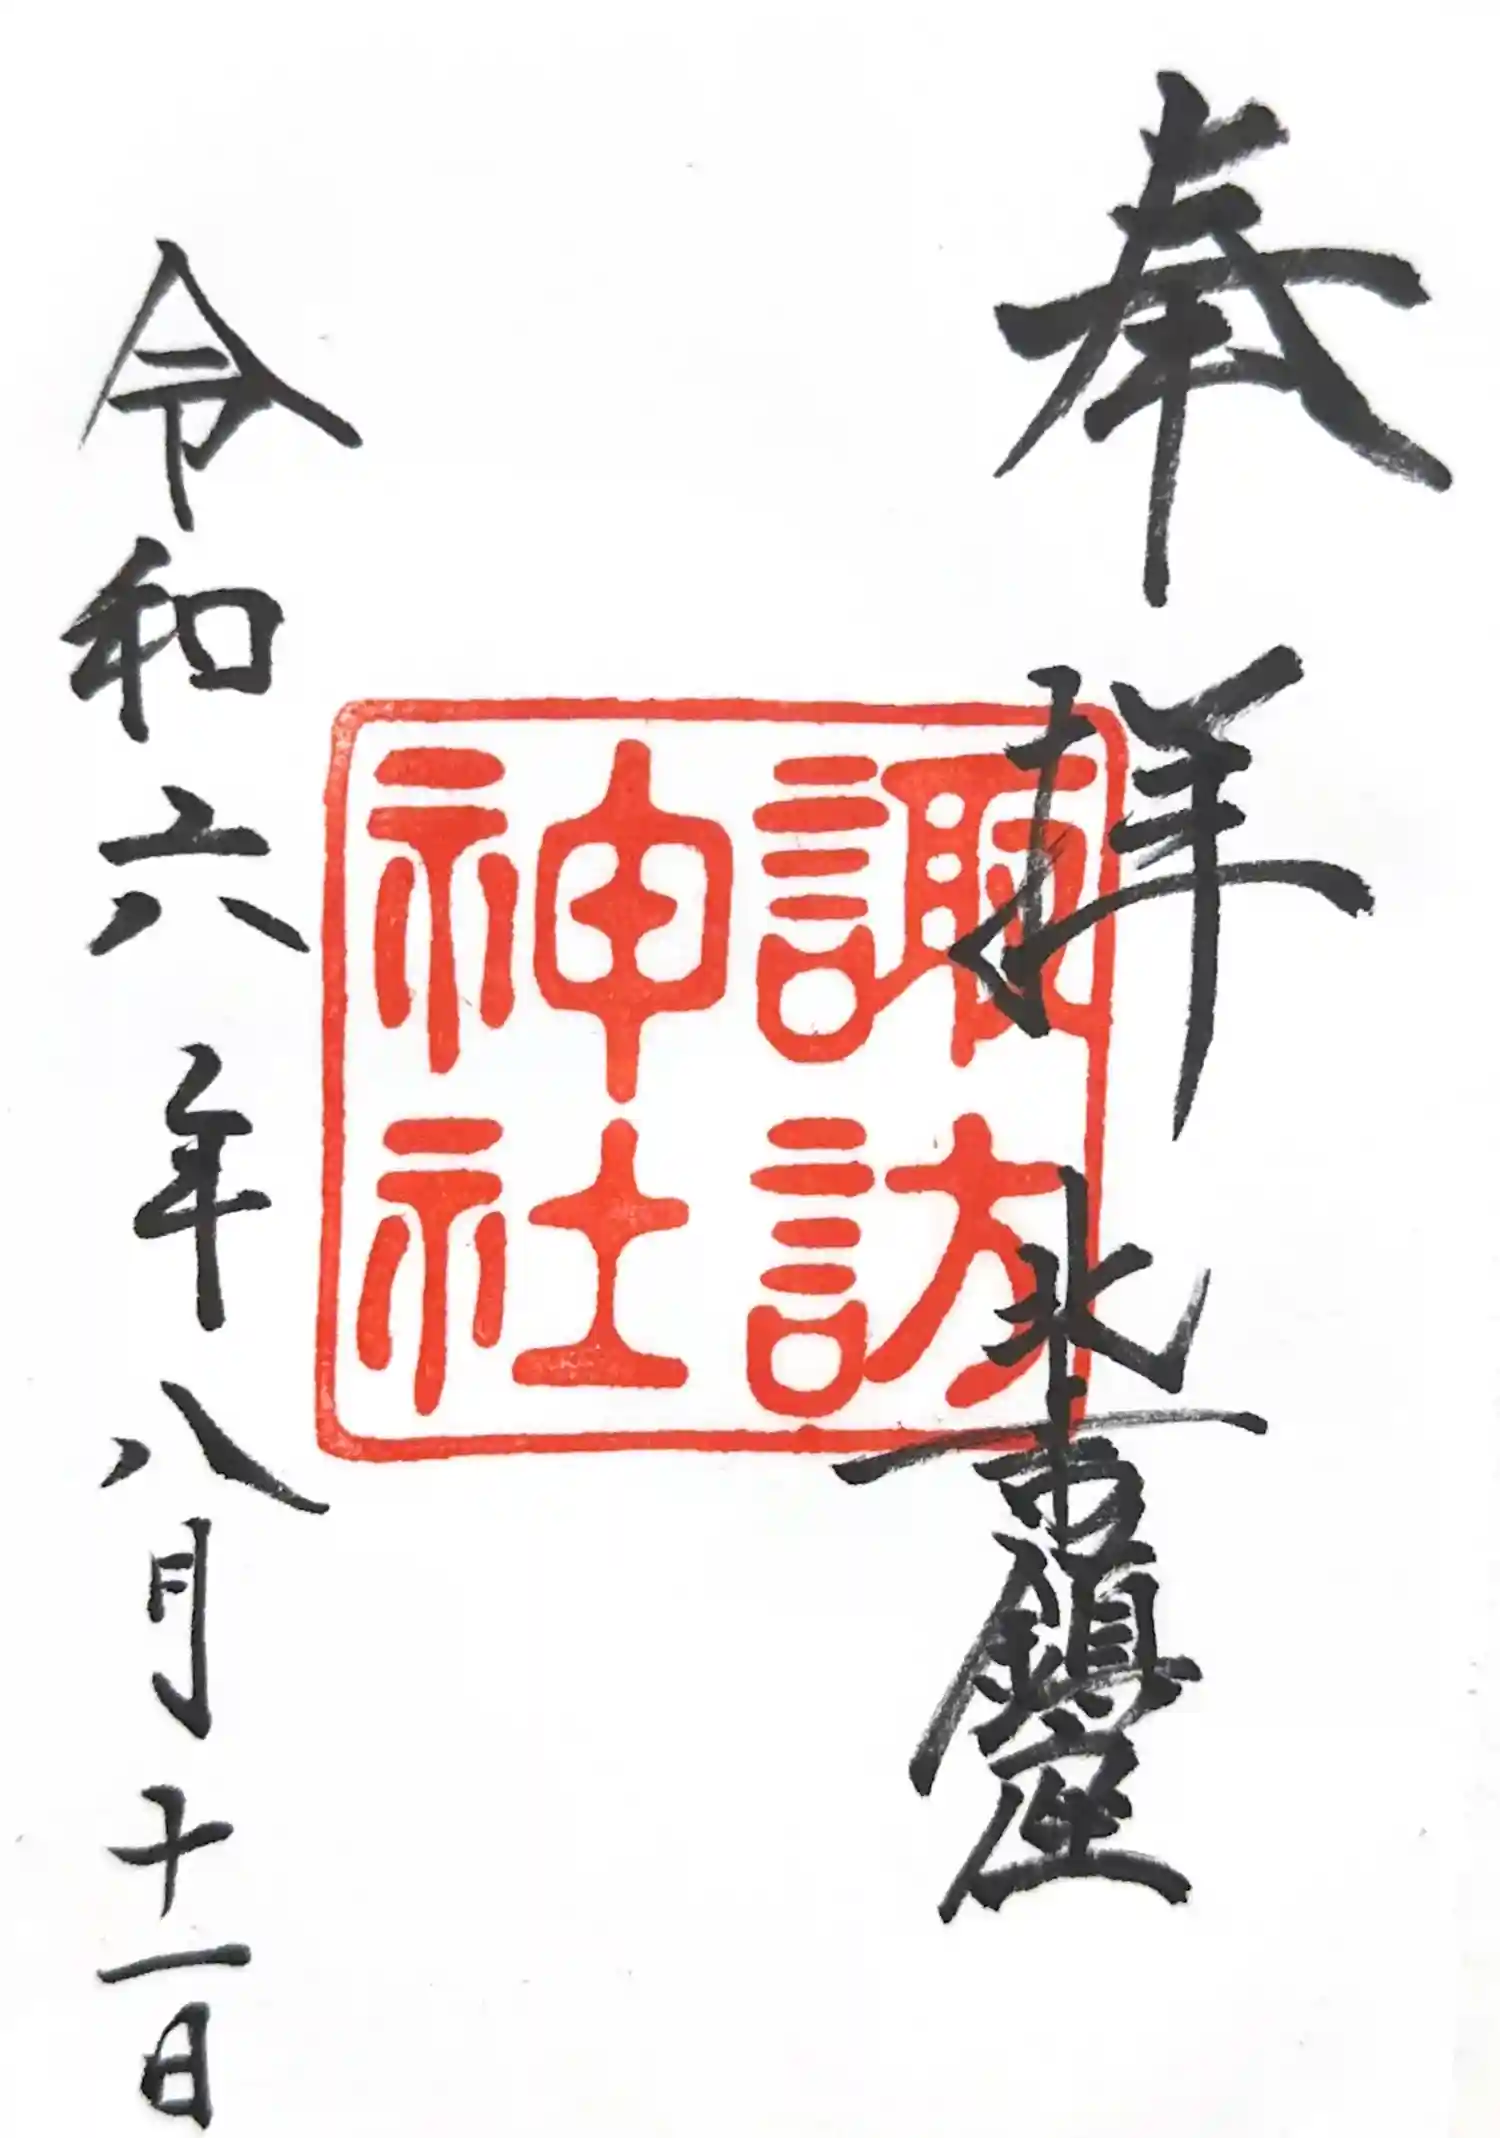 奉拝 北上市鎮座
諏訪
神社
令和六年八月十一日